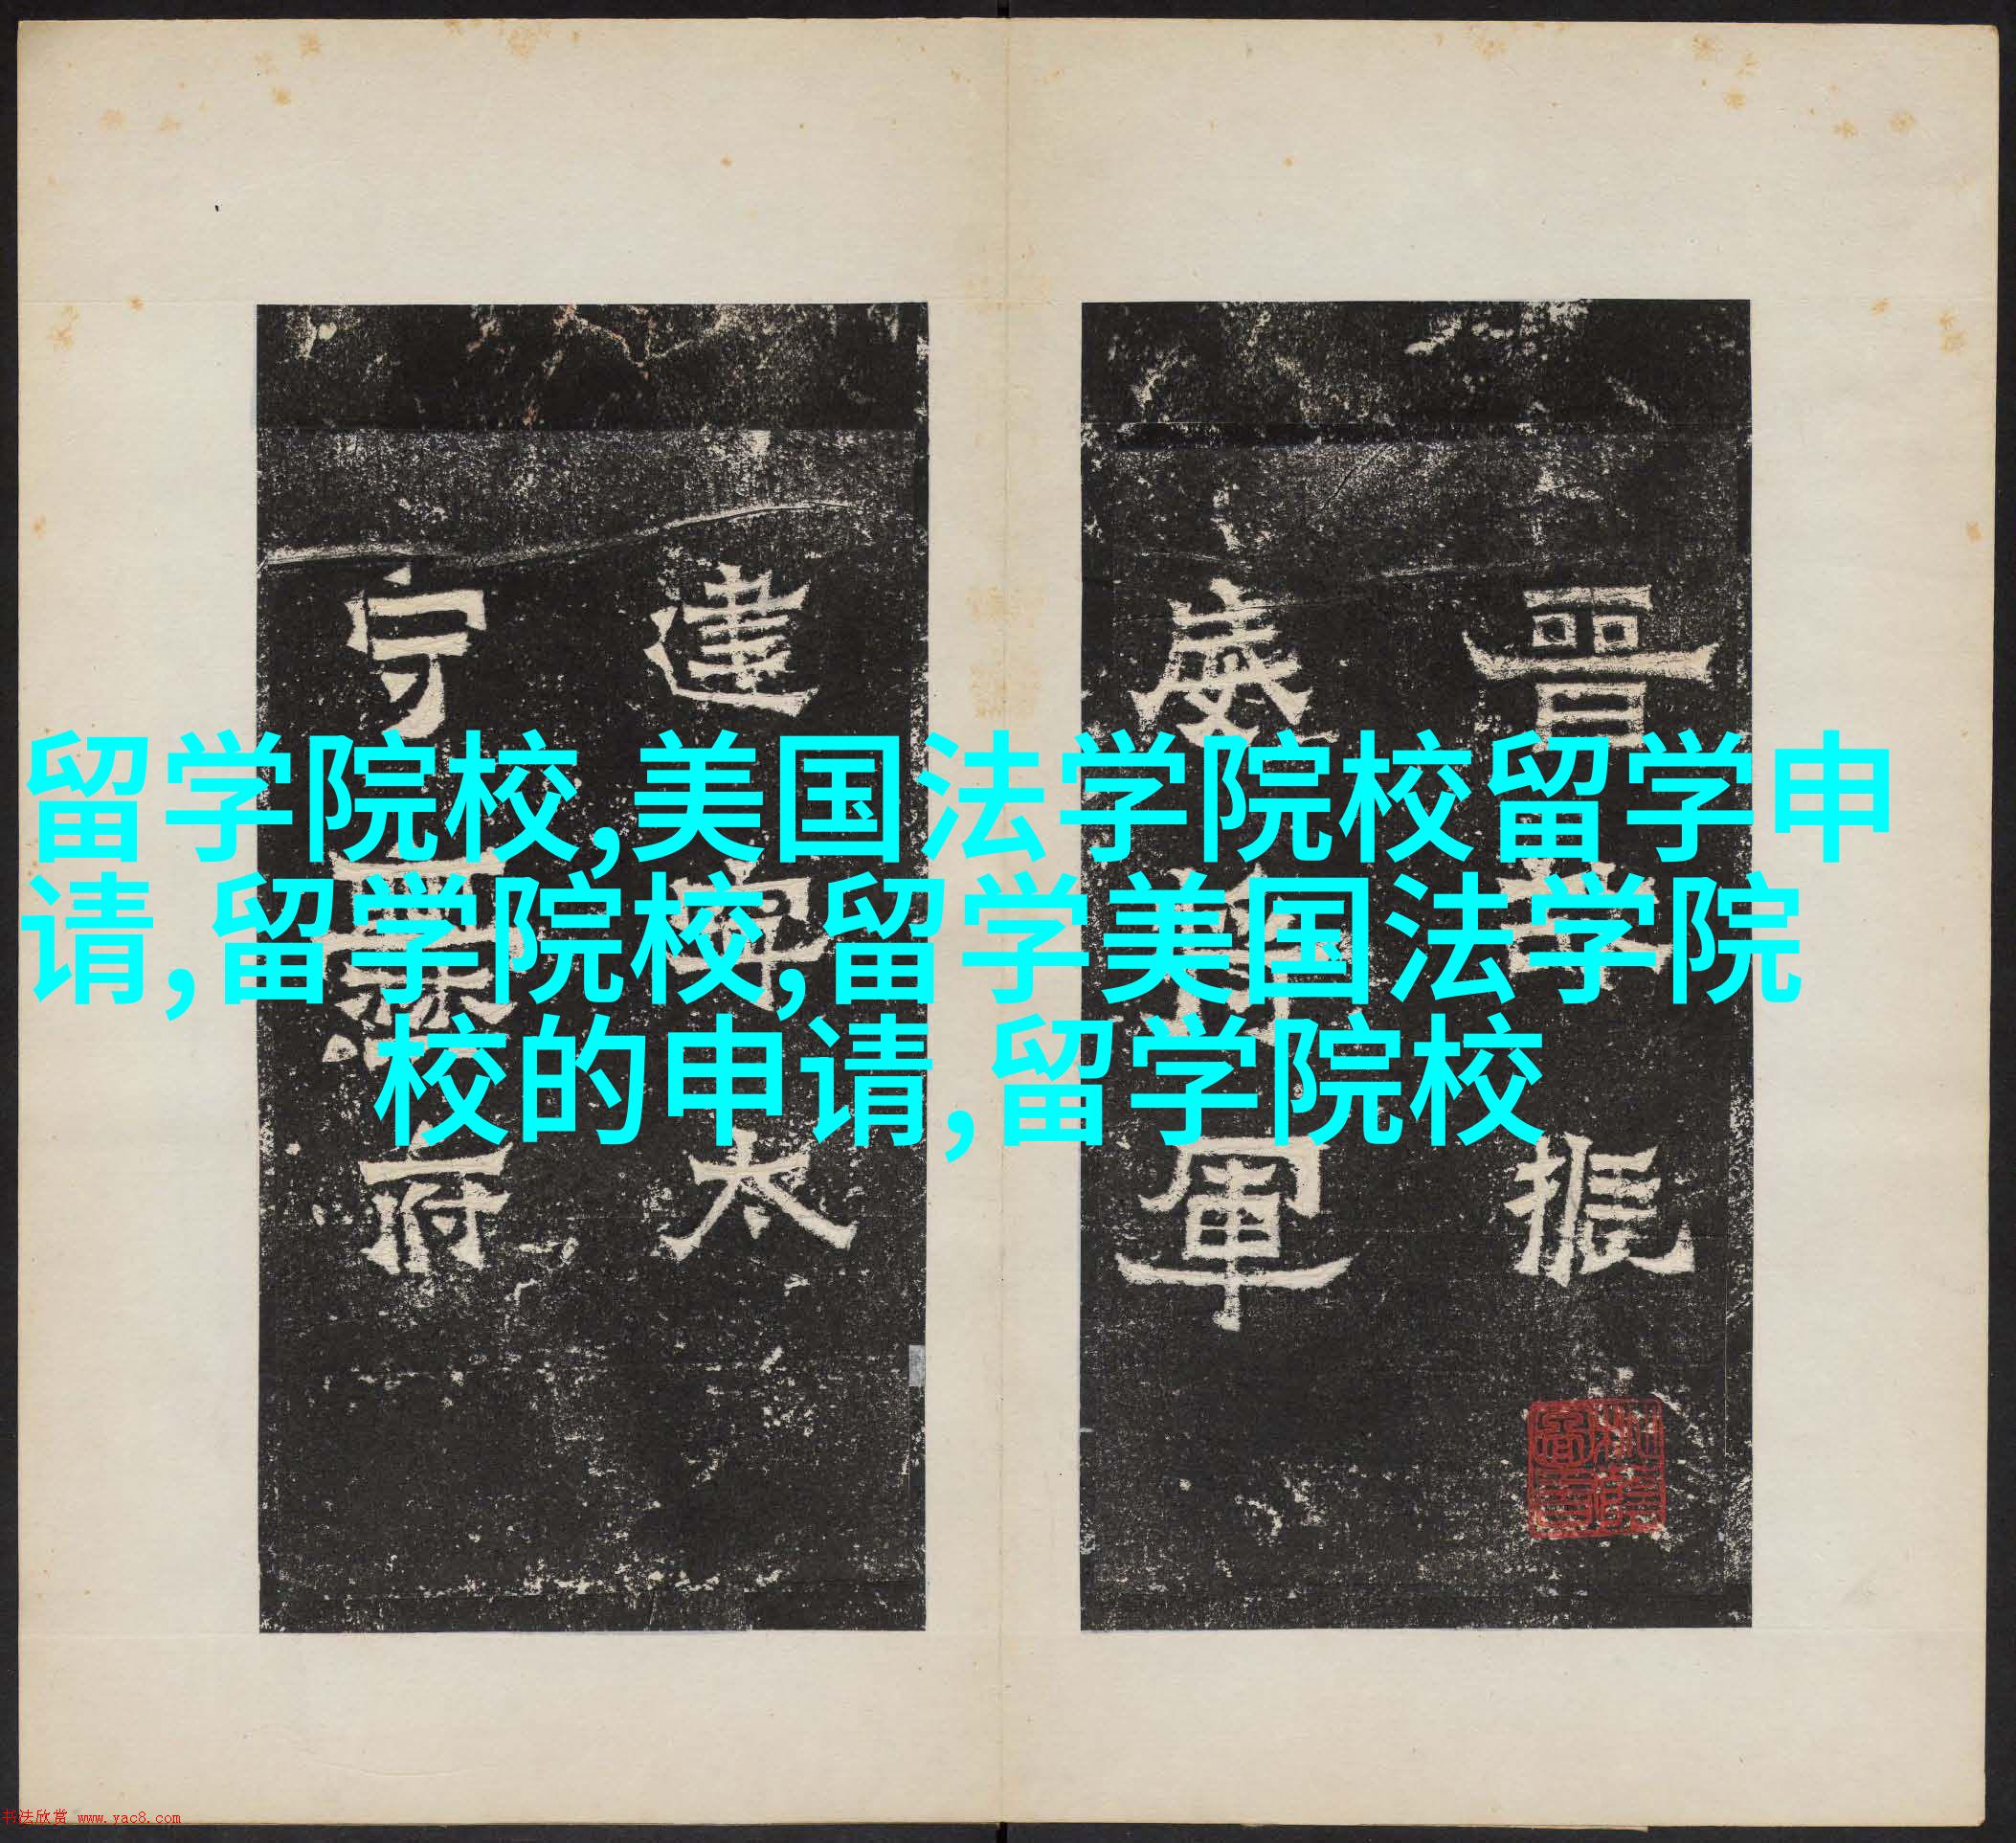 留学院校,美国法学院校留学申
请,留学院校,留学美国法学院
校的申请,留学院校
晋
振
威
軍
建
太
守
府
书法欣赏 www.yac8.com